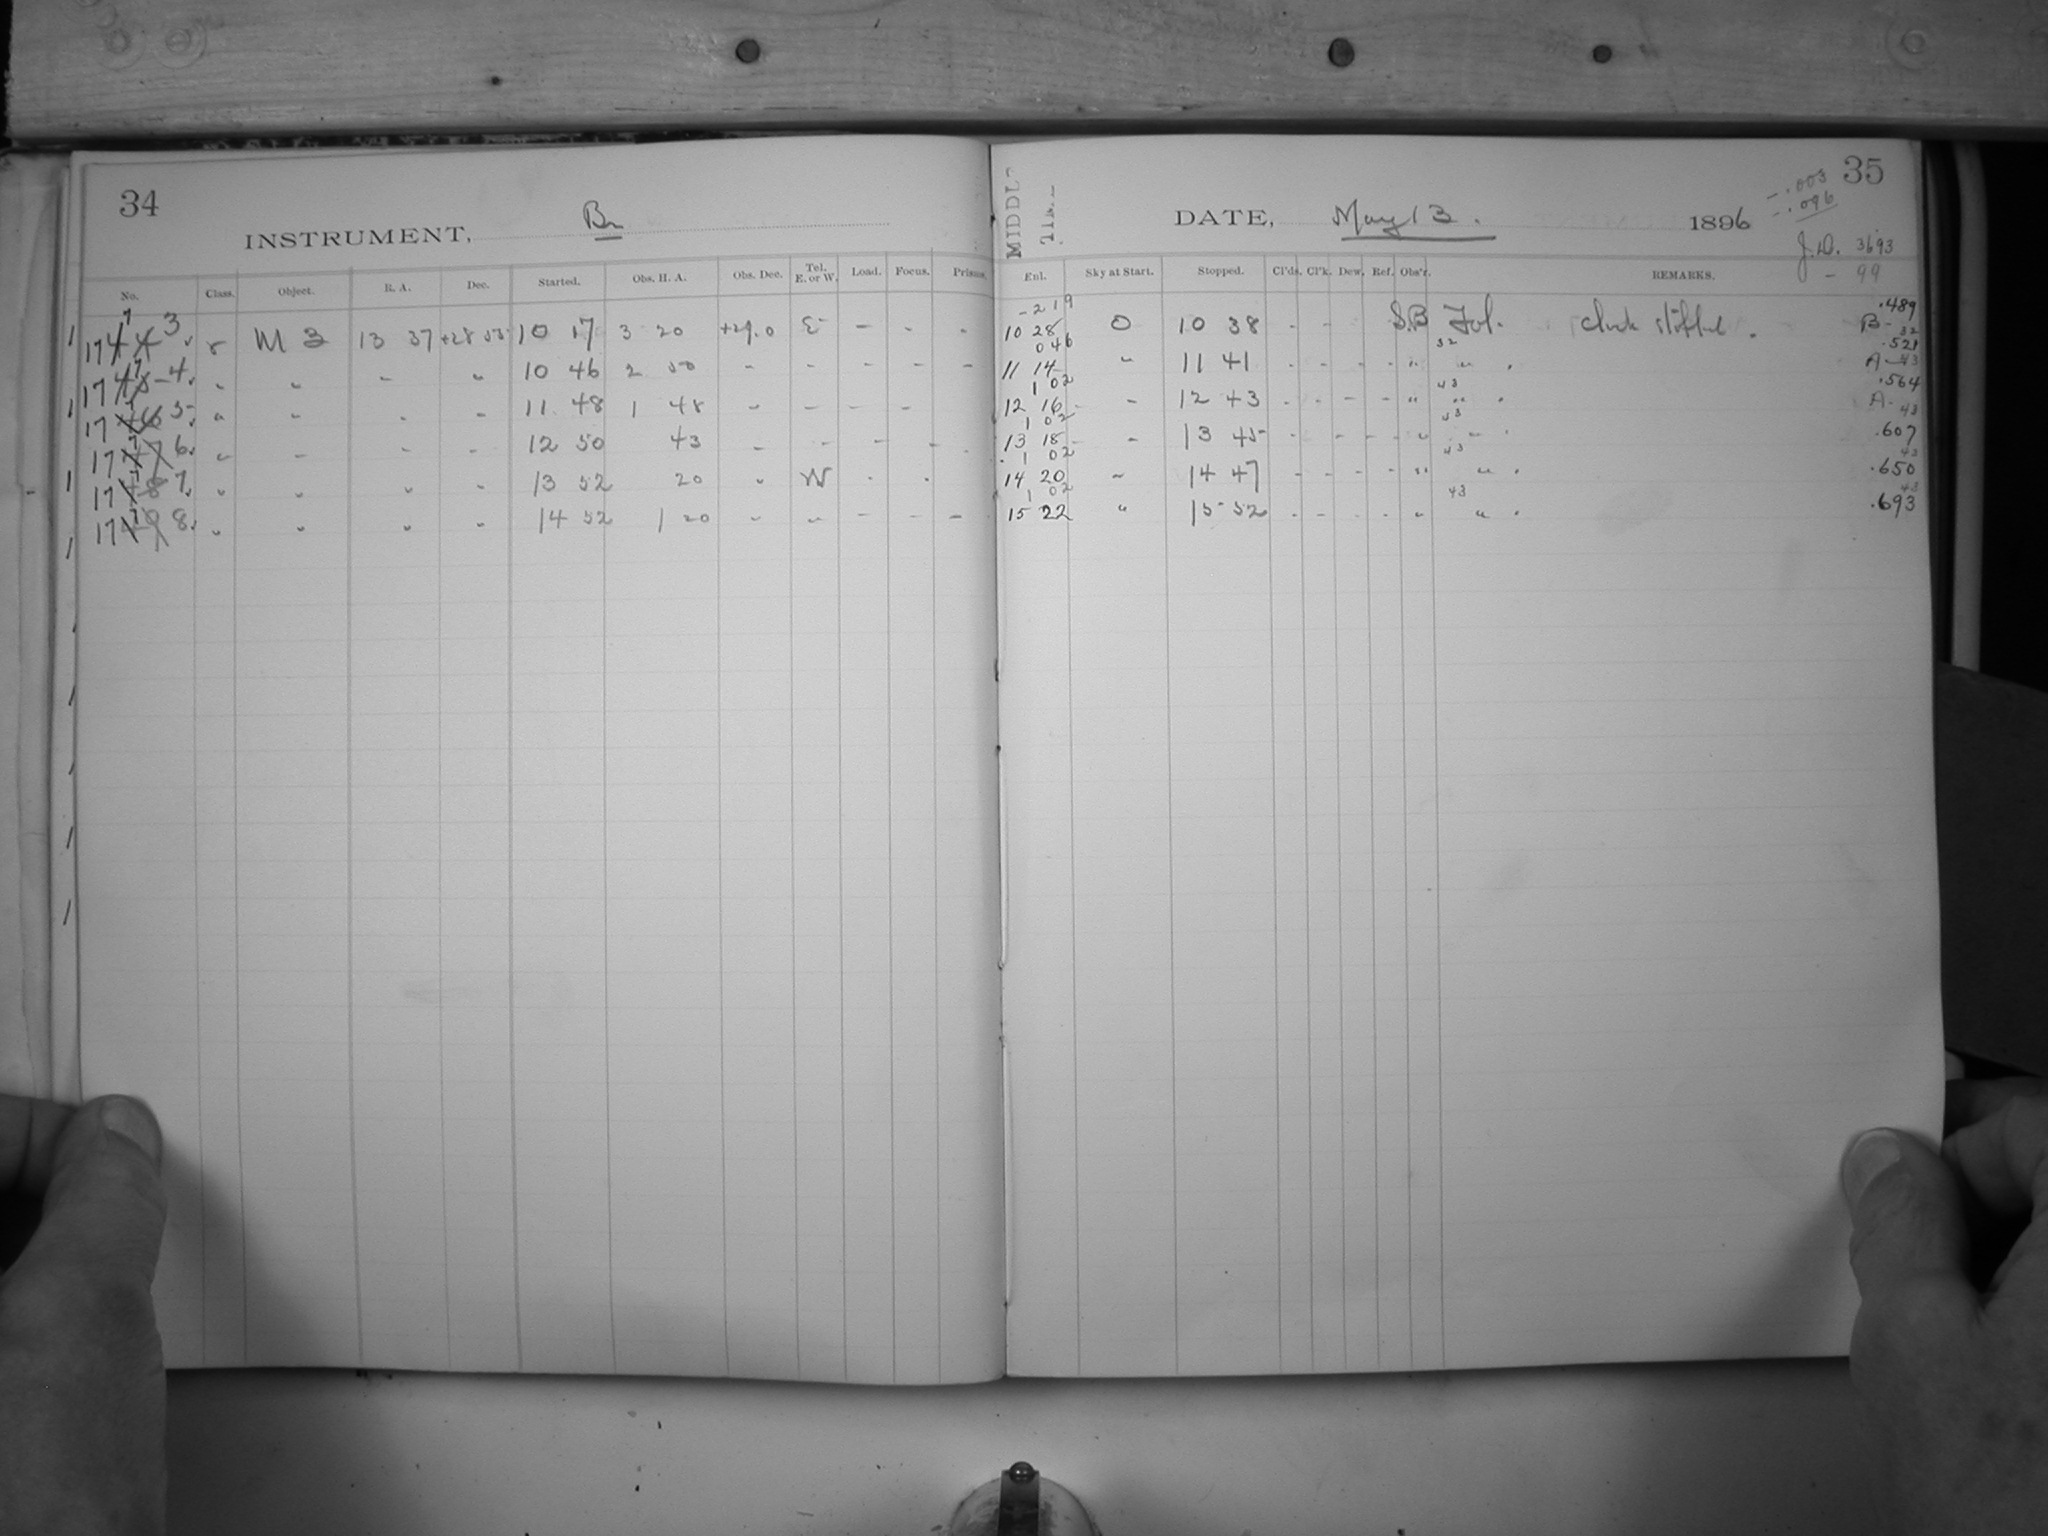 34
INSTRUMENT, Br
No. Class. Object. R. A. Dec. Started. Obs. H. A. Obs. Dec. Tel. E. or W. Load. Focus. Prisms.
1773. r M 3 13 37 +28 53 10 17 3 20 +29.0 E - - -
1774. " " " " 10 46 2 50 - - - - -
1775. " " " " 11 48 1 48 - - - -
1776. " " " " 12 50 43 - - - -
1777. " " " " 13 52 20 " W - -
1778. " " " " 14 52 1 20 " " - - -
35
- .003
- .096
DATE, May 13. 1896
J.D. 3693
- 99
MIDDLE
Enl. Sky at Start. Stopped. Cl'ds. Cl'k. Dew. Ref. Obs'r. REMARKS.
- 2 19 .489
10 28 O 10 38 - - S.B Fol. clock stopped. B- 32
0 46 32 .521
11 14 " 11 41 - - - - " " . A- 43
1 02 43 .564
12 16 - 12 43 - - - - " " . A- 43
1 02 43 .607
13 18 - 13 45 - - - - " " .
1 02 43 43
14 20 " 14 47 - - - - " " . .650
1 02 43 43
15 22 " 15 52 - - - - " " . .693